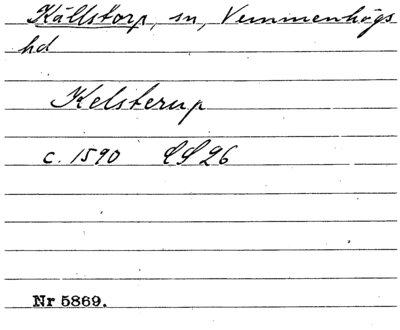 Källstorp, sn, Vemmenhögs
hd
Kelsterup
c. 1590 LS 26
Nr 5869.